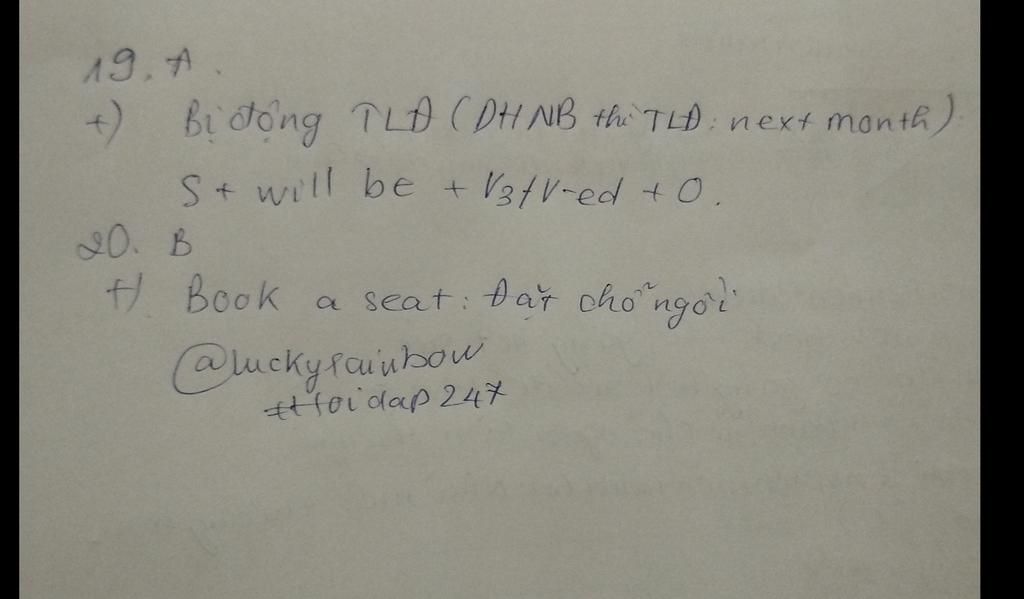 19. A.
+) Bị động TLĐ (DHNB thì TLĐ: next month).
S + will be + V3/V-ed + O.
20. B
+) Book a seat: Đặt chỗ ngồi
@luckyrainbow
#hoidap247